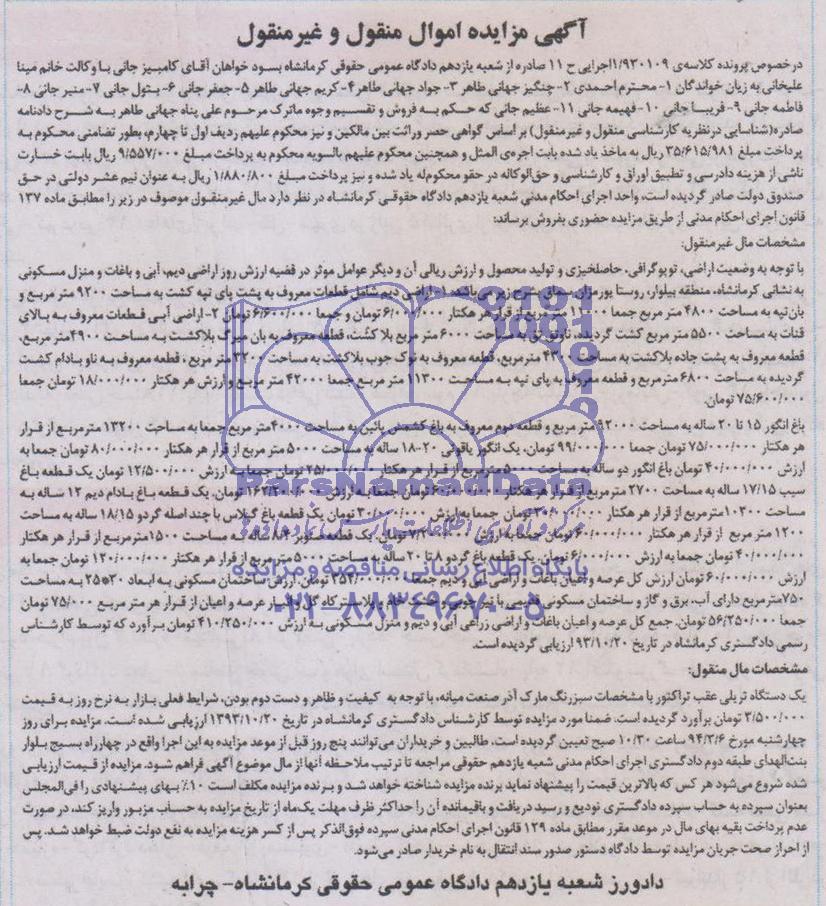 آگهی مزایده اموال منقول و غیرمنقول
درخصوص پرونده کلاسه‌ی ۱/۹۳۰۱۰۹اجرایی ح ۱۱ صادره از شعبه یازدهم دادگاه عمومی حقوقی کرمانشاه بسود خواهان آقای کامبیز جانی با وکالت خانم مینا
علیخانی به زیان خواندگان ۱- محترم احمدی ۲- چنگیز جهانی طاهر ۳- جواد جهانی طاهر ۴- کریم جهانی طاهر ۵- جعفر جانی ۶- بتول جانی ۷- منیر جانی ۸-
فاطمه جانی ۹- فریبا جانی ۱۰- فهیمه جانی ۱۱- عظیم جانی که حکم به فروش و تقسیم وجوه ماترک مرحوم علی پناه جهانی طاهر به شرح دادنامه
صادره(شناسایی درنظریه کارشناسی منقول و غیرمنقول) بر اساس گواهی حصر وراثت بین مالکین و نیز محکوم علیهم ردیف اول تا چهارم، بطور تضامنی محکوم به
پرداخت مبلغ ۳۵/۶۱۵/۹۸۱ ریال به ماخذ یاد شده بابت اجره‌ی المثل و همچنین محکوم علیهم بالسویه محکوم به پرداخت مبلغ ۹/۵۵۷/۰۰۰ ریال بابت خسارت
ناشی از هزینه دادرسی و تطبیق اوراق و کارشناسی و حق‌الوکاله در حقو محکوم‌له یاد شده و نیز پرداخت مبلغ ۱/۸۸۰/۸۰۰ ریال به عنوان نیم عشر دولتی در حق
صندوق دولت صادر گردیده است، واحد اجرای احکام مدنی شعبه یازدهم دادگاه حقوقی کرمانشاه در نظر دارد مال غیرمنقول موصوف در زیر را مطابق ماده ۱۳۷
قانون اجرای احکام مدنی از طریق مزایده حضوری بفروش برساند:
مشخصات مال غیرمنقول:
با توجه به وضعیت اراضی، توپوگرافی، حاصلخیزی و تولید محصول و ارزش ریالی آن و دیگر عوامل موثر در قضیه ارزش روز اراضی دیم، آبی و باغات و منزل مسکونی
به نشانی کرمانشاه، منطقه بیلوار، روستا پورمزان سفلی بشرح زیر می باشد. ۱- اراضی دیم شامل قطعات معروف به پشت پای تپه کشت به مساحت ۹۲۰۰ متر مربع و
بان تپه به مساحت ۴۸۰۰ متر مربع جمعا ۱۱۰۰۰ متر مربع از قرار هر هکتار ۶/۰۰۰/۰۰۰ تومان و جمعا ۶/۶۰۰/۰۰۰ تومان ۲- اراضی آبی قطعات معروف به بالای
قنات به مساحت ۵۵۰۰ متر مربع کشت گردیده، به مساحت ۶۰۰۰ متر مربع بلا کشت، قطعه معروف به بان میرگ بلاکشت به مساحت ۴۹۰۰متر مربع،
قطعه معروف به پشت جاده بلاکشت به مساحت ۴۳۰۰ مترمربع، قطعه معروف به نوک جوب بلاکشت به مساحت ۳۲۰۰ متر مربع، قطعه معروف به ناو بادام کشت
گردیده به مساحت ۶۸۰۰ متر مربع و قطعه معروف به پای تپه به مساحت ۱۱۳۰۰ متر مربع جمعا ۴۲۰۰۰ متر مربع و ارزش هر هکتار ۱۸/۰۰۰/۰۰۰ تومان جمعا
۷۵/۶۰۰/۰۰۰ تومان.
باغ انگور ۱۵ تا ۲۰ ساله به مساحت ۹۲۰۰۰ متر مربع و قطعه دوم معروف به باغ کشمش پائین به مساحت ۴۰۰۰متر مربع جمعا به مساحت ۱۳۲۰۰ متر مربع از قرار
هر هکتار ۷۵/۰۰۰/۰۰۰ تومان جمعا ۹۹/۰۰۰/۰۰۰ تومان، یک انگور یاقوتی ۲۰-۱۸ ساله به مساحت ۵۰۰۰ متر مربع از قرار هر هکتار ۸۰/۰۰۰/۰۰۰ تومان جمعا به
ارزش ۴۰/۰۰۰/۰۰۰ تومان باغ انگور دو ساله به مساحت ۵۰۰۰ مترمربع از قرار هر هکتار ۲۵/۰۰۰/۰۰۰ تومان جمعا به ارزش ۱۲/۵۰۰/۰۰۰ تومان یک قطعه باغ
سیب ۱۷/۱۵ ساله به مساحت ۲۷۰۰ متر مربع از قرار هر هکتار تومان جمعا به ارزش تومان، یک قطعه باغ بادام دیم ۱۲ ساله به
مساحت ۱۰۳۰۰متر مربع از قرار هر هکتار تومان جمعا به ارزش ۳۰/۰۰۰/۰۰۰ تومان یک قطعه باغ گیلاس با چند اصله گردو ۱۸/۱۵ ساله به مساحت
۱۲۰۰ متر مربع از قرار هر هکتار ۶۰/۰۰۰/۰۰۰ تومان جمعا به ارزش تومان. یک قطعه صنوبر ۸،۴ ساله به مساحت ۱۵۰۰مترمربع از قرار هر هکتار
۴۰/۰۰۰/۰۰۰ تومان جمعا به ارزش ۶/۰۰۰/۰۰۰ تومان. یک قطعه باغ گردو ۸ تا ۲۰ ساله به مساحت ۵۰۰۰ متر مربع از قرار هر هکتار ۱۲۰/۰۰۰/۰۰۰ تومان جمعا به
ارزش ۶۰/۰۰۰/۰۰۰ تومان ارزش کل عرصه و اعیان باغات و اراضی آبی و دیم جمعا تومان. ارزش ساختمان مسکونی به ابعاد ۳۰*۲۵ به مساحت
۷۵۰مترمربع دارای آب، برق و گاز و ساختمان مسکونی قدیمی با تیر چوبی و کاه گل عرصه و اعیان از قرار هر متر مربع ۷۵/۰۰۰ تومان
جمعا ۵۶/۲۵۰/۰۰۰ تومان، جمع کل عرصه و اعیان باغات و اراضی زراعی آبی و دیم و منزل مسکونی به ارزش ۴۱۰/۲۵۰/۰۰۰ تومان برآورد که توسط کارشناس
رسمی دادگستری کرمانشاه در تاریخ ۹۳/۱۰/۲۰ ارزیابی گردیده است.
مشخصات مال منقول:
یک دستگاه تریلی عقب تراکتور با مشخصات سبزرنگ مارک آذر صنعت میانه، با توجه به کیفیت و ظاهر و دست دوم بودن، شرایط فعلی بازار به نرخ روز به قیمت
۳/۵۰۰/۰۰۰ تومان برآورد گردیده است. ضمنا مورد مزایده توسط کارشناس دادگستری کرمانشاه در تاریخ ۱۳۹۳/۱۰/۲۰ ارزیابی شده است. مزایده برای روز
چهارشنبه مورخ ۹۴/۳/۶ ساعت ۱۰/۳۰ صبح تعیین گردیده است. طالبین و خریداران می‌توانند پنج روز قبل از موعد مزایده به این اجرا واقع در چهارراه بسیج بلوار
بنت‌الهدای طبقه دوم دادگستری اجرای احکام مدنی شعبه یازدهم حقوقی مراجعه تا ترتیب ملاحظه آنها از مال موضوع آگهی فراهم شود. مزایده از قیمت ارزیابی
شده شروع می‌شود هر کس که بالاترین قیمت را پیشنهاد نماید برنده مزایده شناخته خواهد شد و برنده مزایده مکلف است ۱۰٪ بهای پیشنهادی را فی‌المجلس
بعنوان سپرده به حساب سپرده دادگستری تودیع و رسید دریافت و باقیمانده آن را حداکثر ظرف مهلت یک‌ماه از تاریخ مزایده به حساب مزبور واریز کند، در صورت
عدم پرداخت بقیه بهای مال در موعد مقرر مطابق ماده ۱۲۹ قانون اجرای احکام مدنی سپرده فوق‌الذکر پس از کسر هزینه مزایده به نفع دولت ضبط خواهد شد. پس
از احراز صحت جریان مزایده توسط دادگاه دستور صدور سند انتقال به نام خریدار صادر می‌شود.
دادورز شعبه یازدهم دادگاه عمومی حقوقی کرمانشاه- چرابه
ParsNamadData
پایگاه اطلاع رسانی مناقصه و مزایده
۰۲۱-۸۸۳۴۹۶۷۰-۵